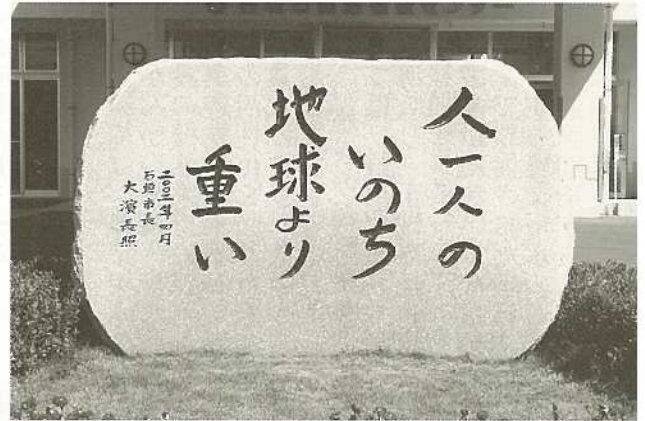 人一人の
いのち
地球より
重い
二〇〇二年四月
石垣市長
大濱長照